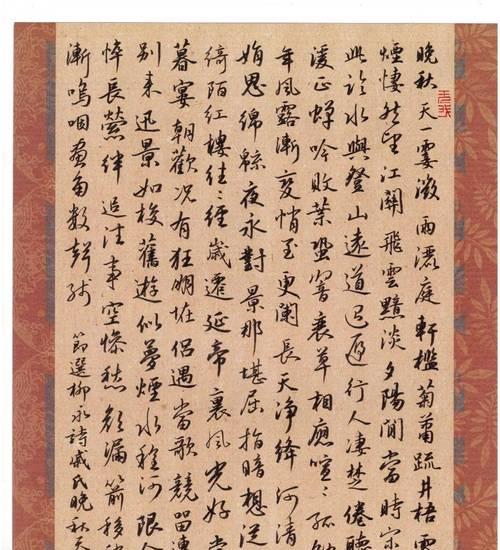 晚秋天一霎微雨灑庭軒檻菊蕭疏井梧零
煙悽然望江關飛雲黯淡夕陽閒當時宋
此臨水與登山遠道迢遞行人凄楚倦聽
湲正蟬吟敗葉蛩響衰草相應喧喧孤
年風露漸變悄至更闌長天淨絳河清
娟思綿綿夜永對景那堪屈指暗想從
綺陌紅樓往往經歲遷延帝裏風光好當
暮宴朝歡況有狂朋怪侶遇當歌競留連
別來迅景如梭舊遊似夢煙水程何限
悴長縈絆追往事空慘愁顏漏箭移
漸嗚咽畫角數聲殘 節選柳永詩戚氏晚秋天